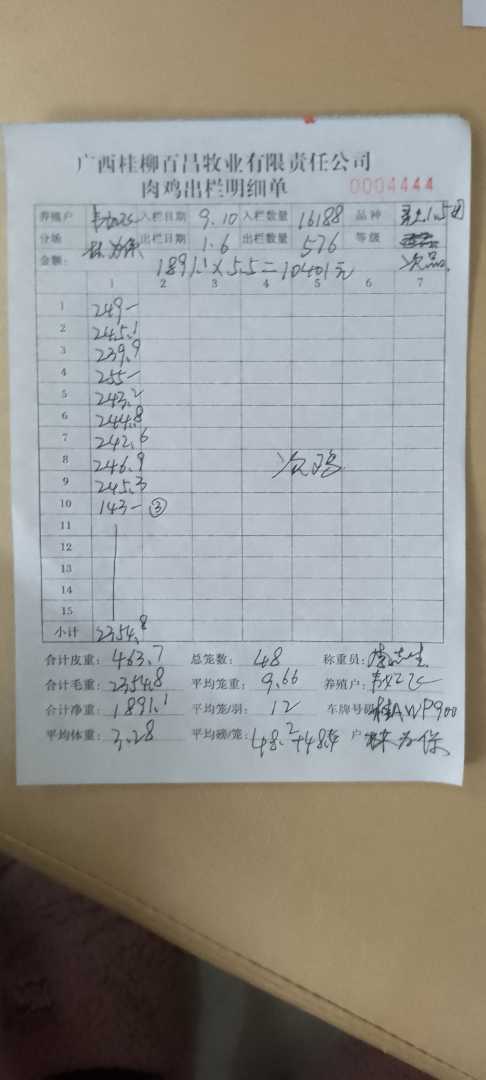 广西桂柳百昌牧业有限责任公司
肉鸡出栏明细单 0004444
养殖户 入栏日期 9.10 入栏数量 16188 品种
分场 林为保 出栏日期 1.6 出栏数量 576 等级 次品
金额: 1891.1×5.5=10401元
1 2 3 4 5 6 7
1 249-
2 245.1
3 239.9
4 255-
5 243.2
6 244.8
7 242.6
8 246.9 次鸡
9 245.3
10 143- ③
11
12
13
14
15
小计 2354.8
合计皮重: 463.7 总笼数: 48 称重员: 李志生
合计毛重: 2354.8 平均笼重: 9.66 养殖户:
合计净重: 1891.1 平均笼/羽: 12 车牌号码: 桂AWP900
平均体重: 3.28 平均磅/笼: 48.2+48.4 户 林为保